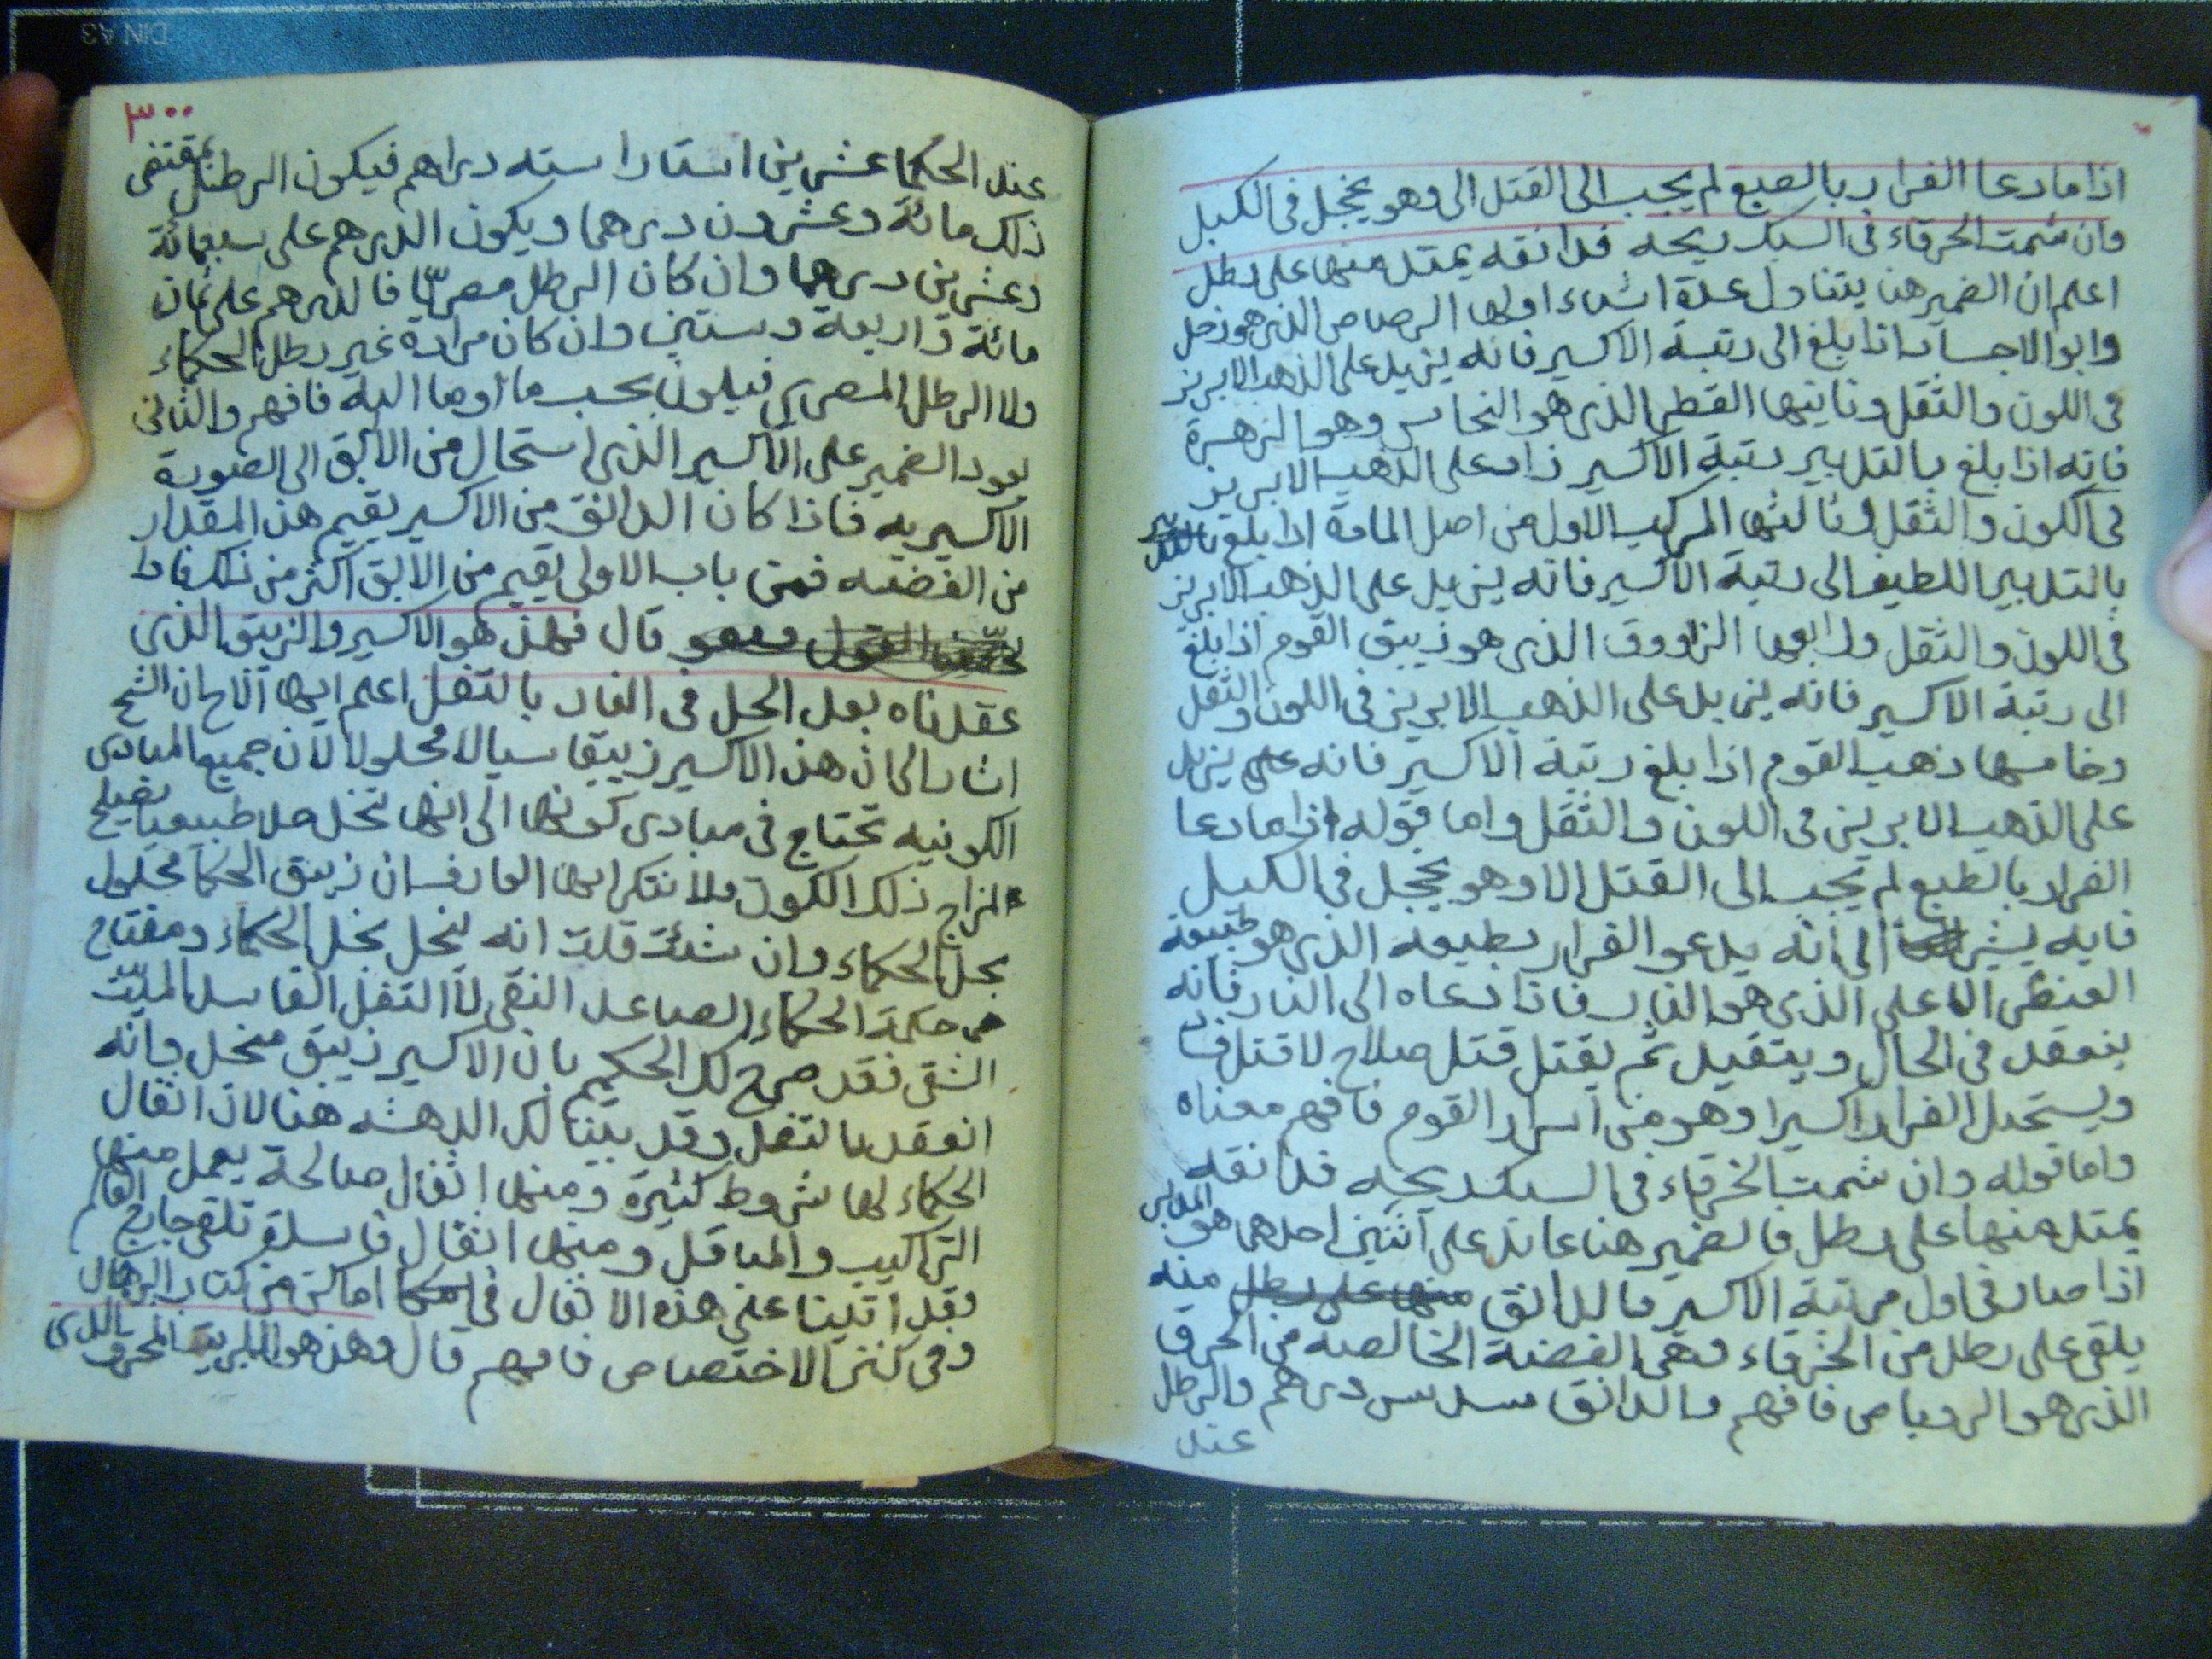 اذا ما دعا الفرار بالصبع لم يجب الى القتل الى وهو يخجل في الكبل
وان شمت الخرقاء في السبك ريحه فدانقه يمتد منها على رطل
اعلم ان الضمير هنا يتناول عدة اشياء اولها الرصاص الذى هو زحل
وابو الاجساد اذا بلغ الى رتبة الاكسير فانه يزيد على الذهب الابريز
في اللون والثقل وثانيها القطر الذى هو النحاس وهو الزهرة
فانه اذا بلغ بالتدبير رتبة الاكسير زاد على الذهب الابريز
في اللون والثقل وثالثها المركب الاول من اصل المادة اذا بلغ
بالتدبير اللطيف الى رتبة الاكسير فانه يزيد على الذهب الابريز
في اللون والثقل ورابعها الزاووق الذى هو زيبق القوم اذا بلغ
الى رتبة الاكسير فانه يزيد على الذهب الابريز في اللون والثقل
وخامسها ذهب القوم اذا بلغ رتبة الاكسير فانه على يزيد
على الذهب الابريز في اللون والثقل واما قوله اذا ما دعا
الفرار بالطبع لم يجب الى القتل الا وهو يحجل في الكبل
فانه يشير الى انه يدعو الفرار بطبعه الذى هو طبيعة
العنصر الاعلى الذى هو النار فاذا دعاه الى النار فانه
ينعقد في الحال ويتقيد ثم يقتل قتل صلاح لا قتل فساد
ويستحيل الفرار اكسيرا وهو من اسرار القوم فافهم معناه
واما قوله وان شمت الخرقاء في السبك ريحه فدانقه
يمتد منها على رطل فالضمير هنا عائد على اثنين احدهما هو المدبر
اذا صار في اول مرتبة الاكسير فالدانق منه
يلقى على رطل من الخرقاء وهى الفضة الخالصة من الحرق
الذى هو الروباص فافهم والدانق سدس درهم والرطل
عند
٣٠٠
عند الحكما عشرين استارا سته دراهم فيكون الرطل بمقتضى
ذلك مائة وعشرون درهما ويكون الدرهم على سبعمائة
وعشرين درهما وان كان الرطل مصريّا فالدرهم على ثمان
مائة واربعة وستين وان كان مراده غير رطل الحكماء
ولا الرطل المصرى فيكون بحسب ما اوما اليه فافهم والثانى
يعود الضمير على الاكسير الذى استحال من الابق الى الصورة
الاكسيريه فاذا كان الدانق من الاكسير يقيم هذا المقدار
من الفضه فمن باب الاولى يقيم من الابق اكثر من ذلك فاذا
قال فهذ هو الاكسير والزيبق الذى
عقدناه بعد الحل في الغار بالتفل اعلم ايها الاخ ان الشيخ
اشار الى ان هذا الاكسير زيبقا سيالا محلولا لان جميع المبادى
الكونيه تحتاج في مبادى كونها الى انها تنحل حلا طبيعيا
المزاج ذلك الكون ولا تنكر ايها العارف ان زيبق الحكما محلول
بحل الحكماء وان شئت قلت انه ينحل بخل الحكماء ومفتاح
حكمة الحكماء الصاعد النقى لا التفل الفاسد الميّت
الشقى فقد صرح لك الحكيم بان الاكسير زيبق منحل وانه
انعقد بالتفل وقد بينّا لك الدهشه هنا لان اثفال
الحكماء لها شروط كثيرة ومنها اثفال صالحة يعمل منها
التراكيب والمباقل ومنها اثفال فاسدة تلقى خارج العالم
وقد اتينا على هذه الاثفال في اماكن من كتاب البرهان
وفى كنز الاختصاص فافهم قال وهذ هو الكبريت المحرق الذى